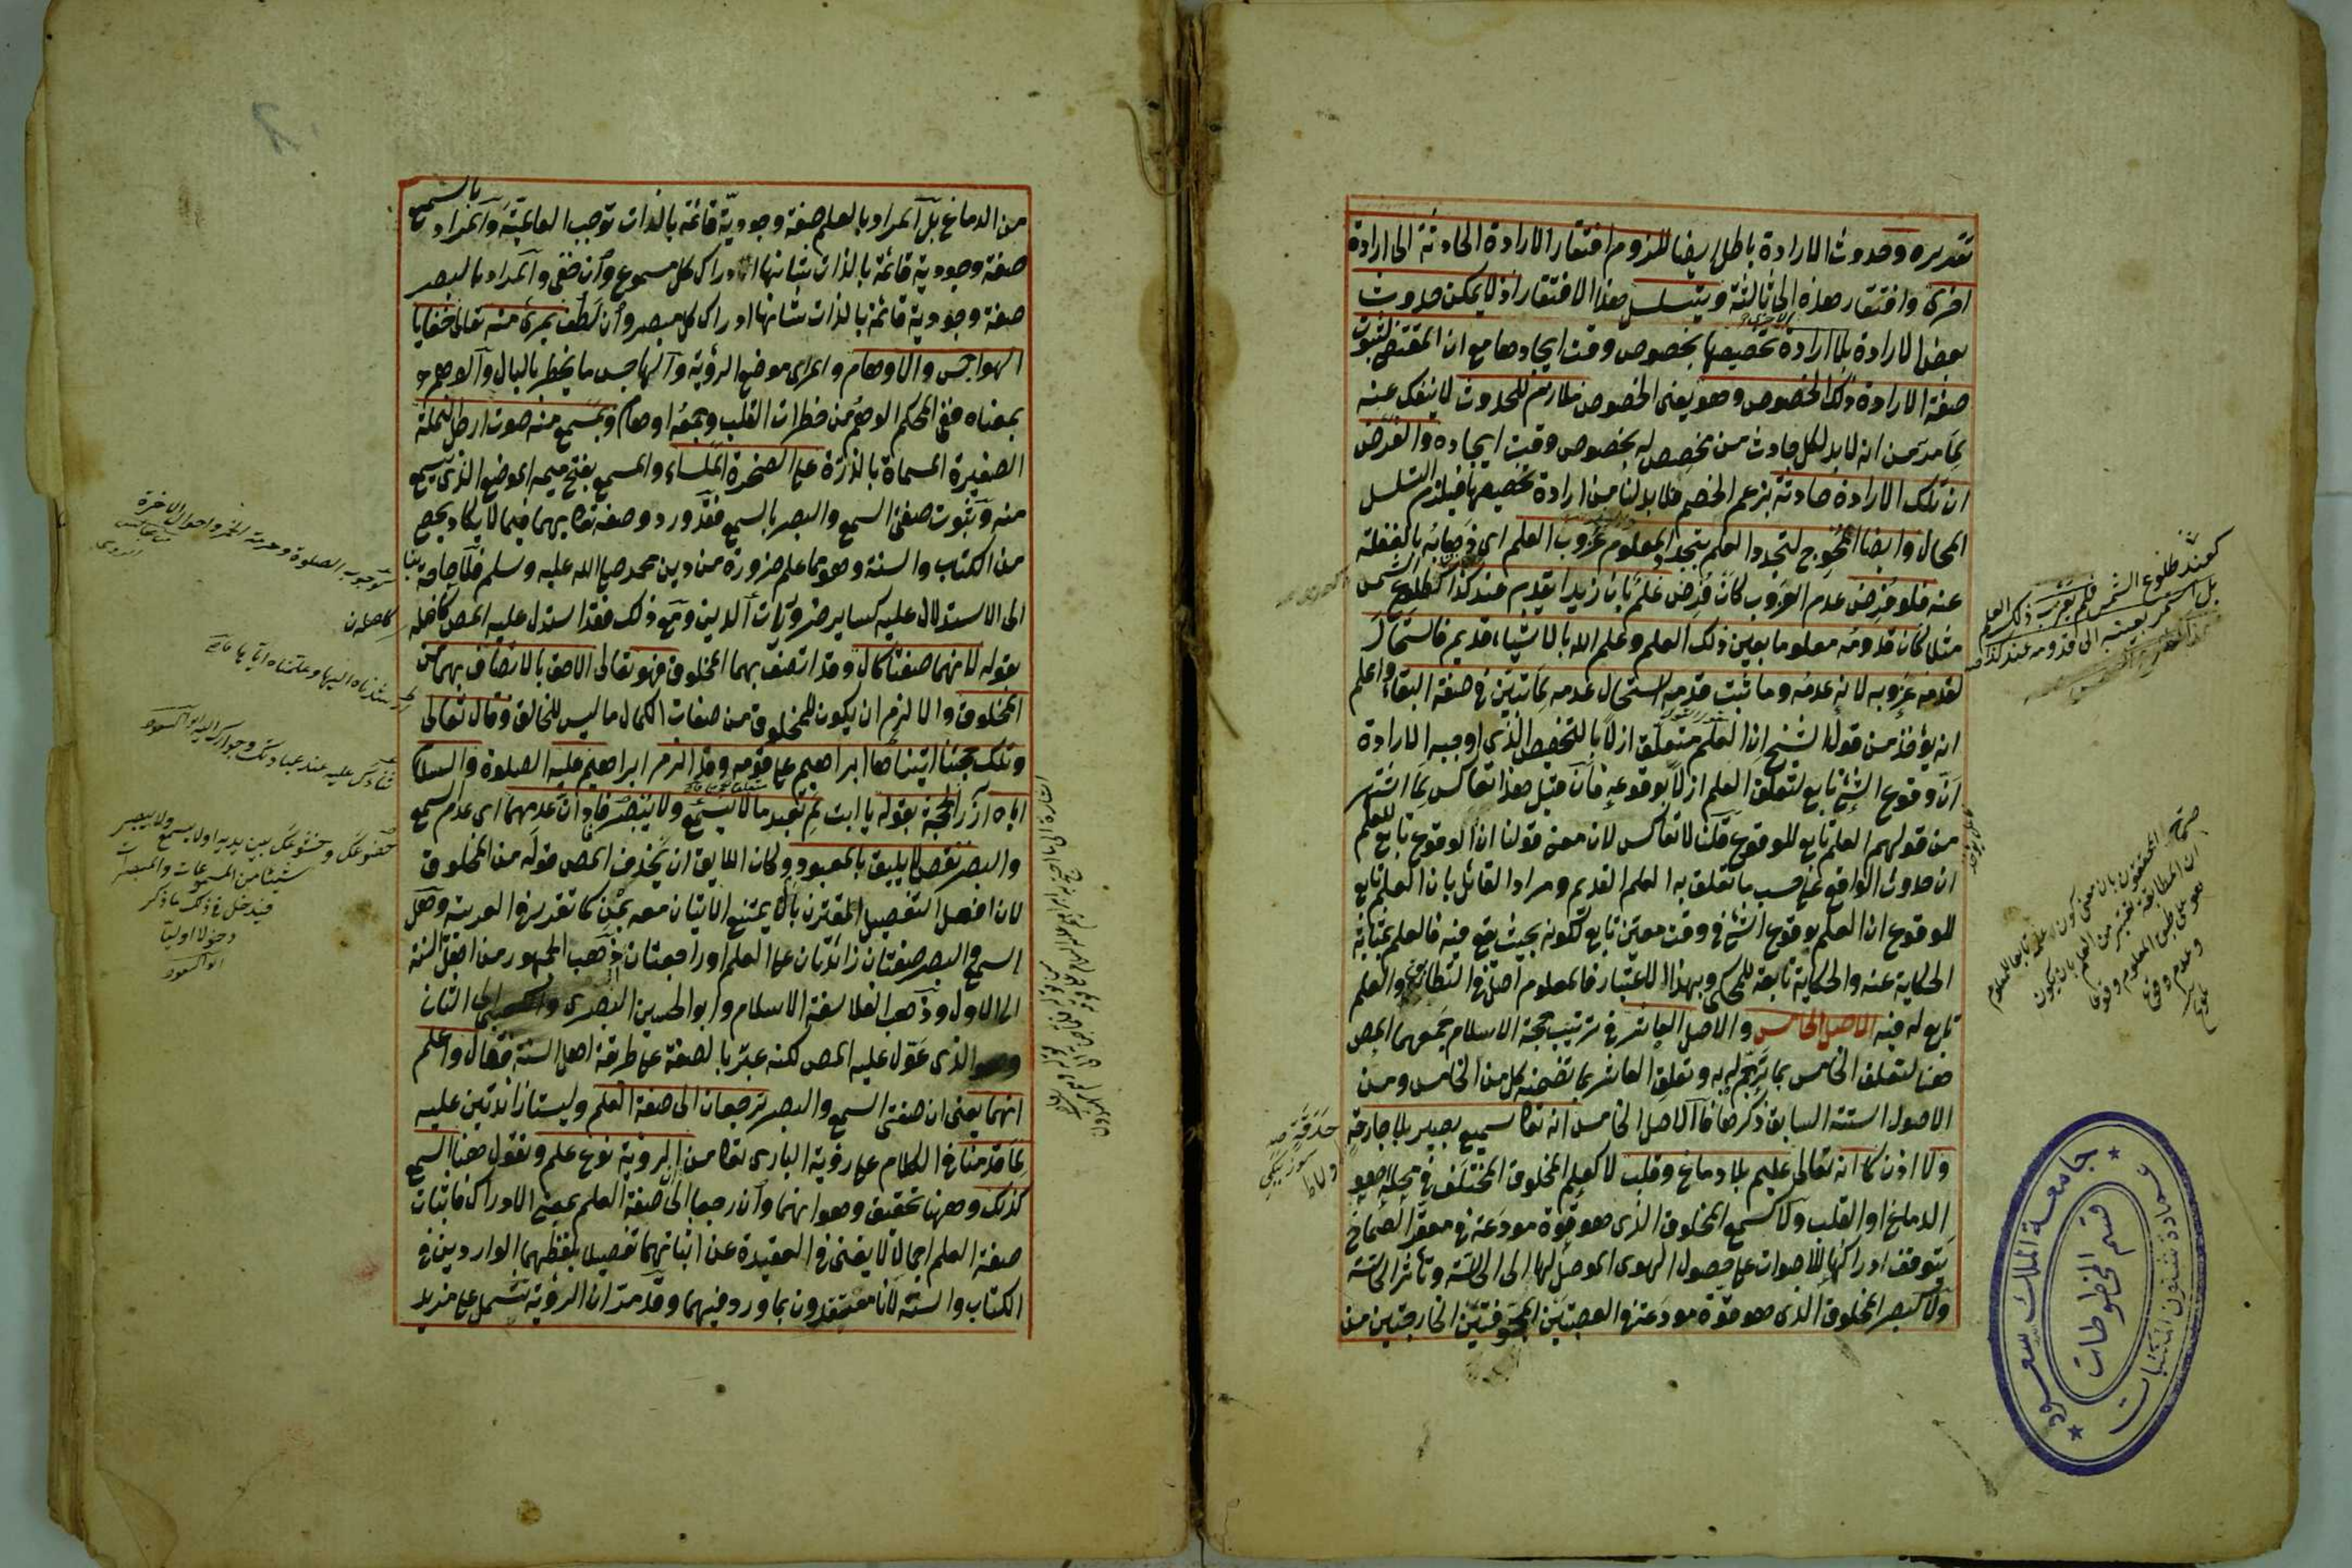 تقديره وحدوث الارادة باطل ايضا للزوم افتقار الارادة الحادثة الى ارادة
اخرى وافتقار هذه الى ثالثة ويتسلسل هذا الافتقار اذ لا يمكن حدوث
بعض الارادة بلا ارادة تخصيصها بخصوص وقت ايجادها مع ان المقتضى لثبوت
صفة الارادة ذلك الخصوص وهو يعنى الخصوص ملازم للحدوث لا ينفك عنه
لما مر من انه لا بد لكل حادث من مخصص له بخصوص وقت ايجاده والفرض
ان تلك الارادة حادثة بزعم الخصم فلا بد لنا من ارادة تخصيصها فيلزم التسلسل
المحال وايضا المحوج لتجدد العلم بتجدد المعلوم عزوب العلم اى ذهابه بالغفلة
عنه فلو فرض عدم العزوب كان فرض علم بان زيدا يقدم عند كذا كطلوع الشمس
مثلا كان قدومه معلوما بعين ذلك العلم وعلم الله بالاشياء قديم فاستحال
لقدمه عزوبه لانه عدمه وما ثبت قدمه استحال عدمه لما تبين فى صفة البقاء واعلم
انه يؤخذ من قول الشيخ ان العلم متعلق ازلا بالتخصيص الذى اوجبه الارادة
ان وقوع الشئ تابع لتعلق العلم ازلا بوقوعه فان قيل هذا تعاكس لما اشتهر
من قولهم العلم تابع للوقوع قلنا لا تعاكس لان معنى قولنا ان الوقوع تابع للعلم
ان حدوث الواقع على حسب ما تعلق به العلم القديم ومراد القائل بان العلم تابع
للوقوع ان العلم بوقوع الشئ فى وقت معين تابع لكونه بحيث يقع فيه فالعلم بمثابة
الحكاية عنه والحكاية تابعة للمحكى وبهذا الاعتبار فالمعلوم اصل فى التطابق والعلم
تابع له فيه الاصل الخامس والاصل العاشر فى ترتيب حجة الاسلام جمعهما المص
هنا لتعلق الخامس بما ترجم له به وتعلق العاشر بما تضمنه كل من الخامس ومن
الاصول الستة السابق ذكرها فالاصل الخامس انه تعا سميع بصير بلا جارحة
ولا اذن كما انه تعالى عليم بلا دماغ وقلب لا كعلم المخلوق المختلف فى محله اهو
الدماغ او القلب ولا كسمع المخلوق الذى هو قوة مودعة فى مقعر الصماخ
يتوقف ادراكها للاصوات على حصول الهوى الموصل لها الى الحاسة وتأثر الحاسة
ولا كبصر المخلوق الذى هو قوة مودعة فى العصبتين المجوفتين الخارجتين من
كعند طلوع الشمس فلم يعزب ذلك العلم
بل استمر بعينه الى قدومه عند كذا
جامعة الملك سعود
عمادة شئون المكتبات
قسم المخطوطات
من الدماغ بل المراد بالعلم صفة وجودية قائمة بالذات توجب العالمية والمراد بالسمع
صفة وجودية قائمة بالذات شانها ادراك كل مسموع وان خفى والمراد بالبصر
صفة وجودية قائمة بالذات شانها ادراك كل مبصر وان لطف بمرئ منه تعالى خفايا
الهواجس والاوهام والمراى موضع الرؤية والهاجس ما يخطر بالبال والوهم هو
بمعناه ففى المحكم الوهم من خطرات القلب وجمعه اوهام وبمسمع منه صوت ارجل النملة
الصغيرة المسماة بالذرة على الصخرة الملساء والمسمع بفتح ميمه الموضع الذى يسمع
منه وثبوت صفتى السمع والبصر بالسمع فقد ورد وصفه تعا بهما فيما لا يكاد يحصى
من الكتاب والسنة وهو مما علم ضرورة من دين محمد صلى الله عليه وسلم فلا حاجة بنا
الى الاستدلال عليه كساير ضروريات الدين ومع ذلك فقد استدل عليه المص كاصله
بقوله لانهما صفتا كمال وقد اتصف بهما المخلوق فهو تعالى الاحق بالاتصاف بهما من
المخلوق والا لزم ان يكون للمخلوق من صفات الكمال ما ليس للخالق وقال تعالى
وتلك حجتنا آتيناها ابراهيم على قومه وقد الزم ابراهيم عليه الصلوة والسلام
اباه آزر الحجة بقوله يا ابت لم تعبد ما لا يسمع ولا يبصر فافاد ان عدمهما اى عدم السمع
والبصر نقص لا يليق بالمعبود وكان اللايق ان يحذف المص قوله من المخلوق
لان افعل التفضيل المقترن بال يمتنع الاتيان معه بمن كما تقرر فى العربية وهل
السمع والبصر صفتان زائدتان على العلم او راجعتان ذهب الجمهور من اهل السنة
الى الاول وذهب الفلاسفة الاسلام وابو الحسين البصرى والكعبى الى الثانى
وهو الذى عول عليه المص لكنه عبر بالصفة على طريقة اهل السنة فقال واعلم
انهما يعنى ان صفتى السمع والبصر ترجعان الى صفة العلم وليستا زائدتين عليه
لما قدمناه فى الكلام على رؤية البارى تعا من ان الرؤية نوع علم ونقول هنا السمع
كذلك وههنا تحقيق وهو انهما وان رجعا الى صفة العلم بمعنى الادراك فاثبات
صفة العلم اجمالا لا يغنى فى العقيدة عن اثباتهما تفصيلا بلفظهما الواردين فى
الكتاب والسنة لانا متعبدون بما ورد فيهما وقد مر ان الرؤية تشمل على مزيد
خضوعك وخشوعك بين يديه او لا يسمع ولا يبصر
شيئا من المسموعات والمبصرات
فيدخل فى ذلك ما ذكر
دخولا اوليا
ابو السعود